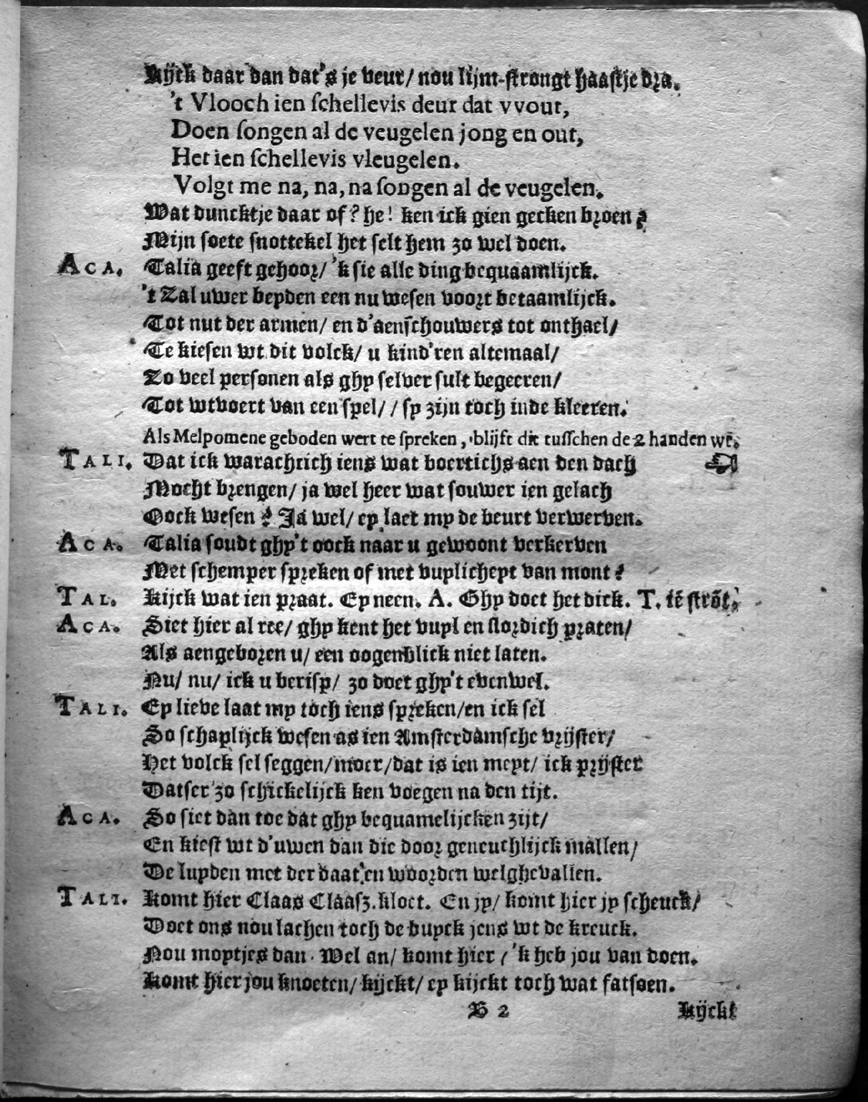 Kijck daar dan dat's je veur/ nou lijm-strongt haastje dra.
't Vlooch ien schellevis deur dat vvout,
Doen songen al de veugelen jong en out,
Het ien schellevis vleugelen.
Volgt me na, na, na songen al de veugelen.
Wat duncktje daar of? he! ken ick gien gecken broen?
Mijn soete snottekel het selt hem zo wel doen.
ACA. Talia geeft gehoor/ 'k sie alle ding bequaamlijck.
't Zal uwer beyden een nu wesen voort betaamlijck.
Tot nut der armen/ en d'aenschouwers tot onthael/
Te kiesen wt dit volck/ u kind'ren altemaal/
Zo veel personen als ghy selver sult begeeren/
Tot wtvoert van een spel/ / sy zijn toch inde kleeren.
Als Melpomene geboden wert te spreken, blijft dit tusschen de 2 handen wē.
TALI. Dat ick warachtich iens wat boertichs aen den dach ☞
Mocht brengen/ ja wel heer wat souwer ien gelach
Oock wesen? Ja wel/ ey laet my de beurt verwerven.
ACA. Talia soudt ghy't oock naar u gewoont verkerven
Met schemper spreken of met vuylicheyt van mont?
TAL. Kijck wat ien praat. Ey neen. A. Ghy doet het dick. T. iē strōt.
ACA. Siet hier al ree/ ghy kent het vuyl en slordich praten/
Als aengeboren u/ een oogenblick niet laten.
Nu/ nu/ ick u berisp/ zo doet ghy't evenwel.
TALI. Ey lieve laat my toch iens spreken/en ick sel
So schaplijck wesen as ien Amsterdamsche vrijster/
Het volck sel seggen/moer/dat is ien meyt/ ick prijster
Datser zo schickelijck ken voegen na den tijt.
ACA. So siet dan toe dat ghy bequamelijcken zijt/
En kiest wt d'uwen dan die door geneuchlijck mallen/
De luyden met der daat en woorden welghevallen.
TALI. Komt hier Claas Claasz. kloet. En jy/ komt hier jy scheuck/
Doet ons nou lachen toch de buyck jens wt de kreuck.
Nou moptjes dan. Wel an/ komt hier / 'k heb jou van doen.
Komt hier jou knoeten/ kijckt/ ey kijckt toch wat fatsoen.
B 2 Kijckt